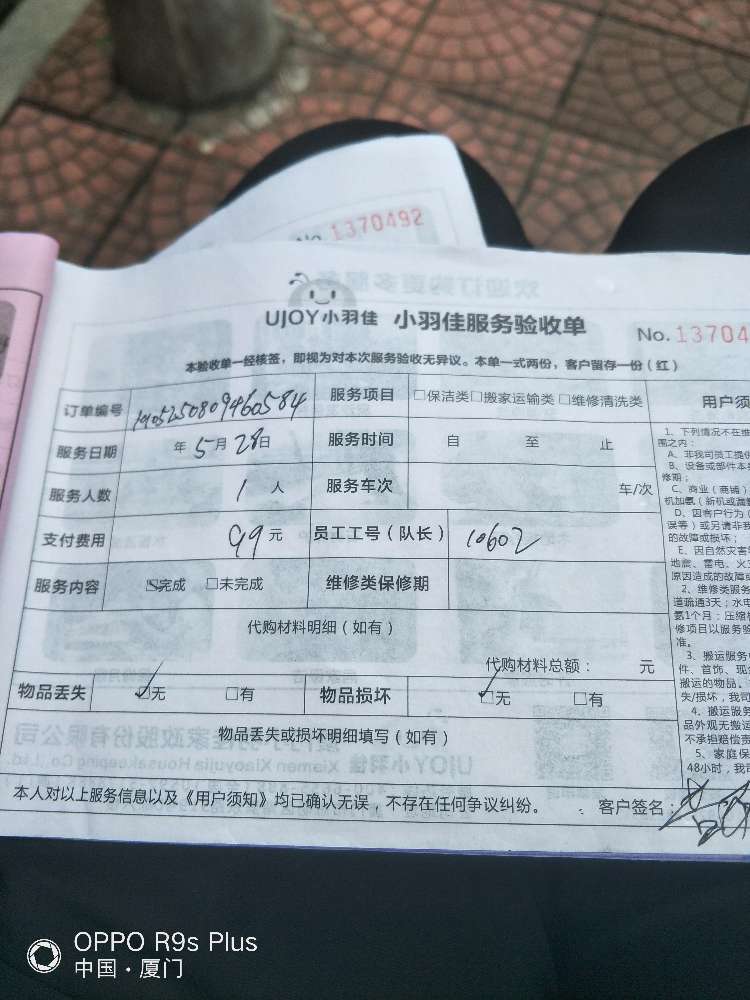 No. 1370492
UJOY小羽佳 小羽佳服务验收单
No. 13704
本验收单一经核签，即视为对本次服务验收无异议。本单一式两份，客户留存一份（红）
订单编号 1905250809460584 服务项目 □保洁类□搬家运输类□维修清洗类
服务日期 年5月28日 服务时间 自 至 止
服务人数 1 人 服务车次 车/次
支付费用 99元 员工工号（队长） 10602
服务内容 ☑完成 □未完成 维修类保修期
代购材料明细（如有）
代购材料总额： 元
物品丢失 ☑无 □有 物品损坏 ☑无 □有
物品丢失或损坏明细填写（如有）
本人对以上服务信息以及《用户须知》均已确认无误，不存在任何争议纠纷。 客户签名：
用户须
1、下列情况不在维
围之内：
A、非我司员工提供
B、设备或部件本
修期；
C、商业（商铺）
机加氨（新机或漏氨
D、因客户行为（
误等）或另请非我
的故障或损坏；
E、因自然灾害
地震、雷电、火灾
原因造成的故障或
2、维修类服务
道疏通3天；水电
氨1个月；压缩机
修项目以服务验
准。
3、搬运服务
件、首饰、现金
搬运的物品。
失/损坏，我司
4、搬运服务
品外观无搬运
不承担赔偿责
5、家庭保
48小时，我司
OPPO R9s Plus
中国·厦门